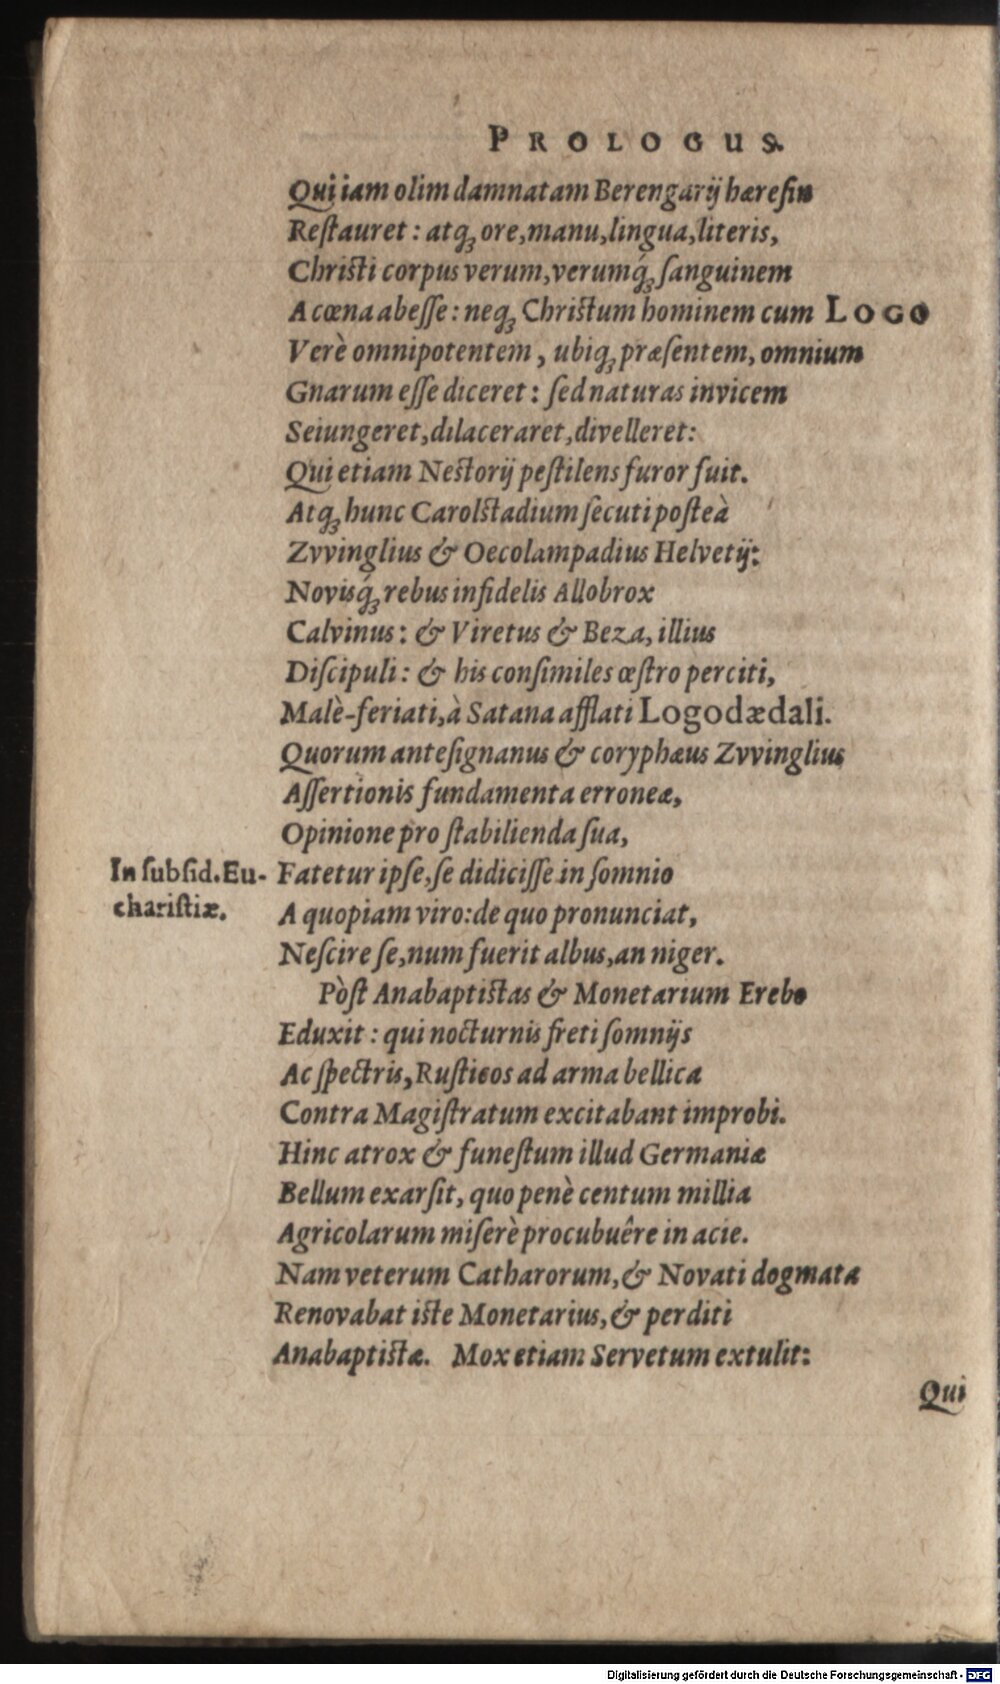 PROLOGUS.
Qui iam olim damnatam Berengarij hæresin
Restauret: atq́ꝫ ore, manu, lingua, literis,
Christi corpus verum, verumq́ꝫ sanguinem
A cœna abesse: neqꝫ Christum hominem cum LOGO
Verè omnipotentem, ubiqꝫ præsentem, omnium
Gnarum esse diceret: sed naturas invicem
Seiungeret, dilaceraret, divelleret:
Qui etiam Nestorij pestilens furor fuit.
Atqꝫ hunc Carolstadium secuti posteà
Zvvinglius & Oecolampadius Helvetij:
Novisq́ꝫ rebus infidelis Allobrox
Calvinus: & Viretus & Beza, illius
Discipuli: & his consimiles œstro perciti,
Malè-feriati, à Satana afflati Logodædali.
Quorum antesignanus & coryphæus Zvvinglius
Assertionis fundamenta erroneæ,
Opinione pro stabilienda sua,
In subsid. Eu- Fatetur ipse, se didicisse in somnio
charistiæ. A quopiam viro: de quo pronunciat,
Nescire se, num fuerit albus, an niger.
Pòst Anabaptistas & Monetarium Erebo
Eduxit: qui nocturnis freti somnijs
Ac spectris, Rusticos ad arma bellica
Contra Magistratum excitabant improbi.
Hinc atrox & funestum illud Germaniæ
Bellum exarsit, quo penè centum millia
Agricolarum miserè procubuêre in acie.
Nam veterum Catharorum, & Novati dogmata
Renovabat iste Monetarius, & perditi
Anabaptistæ. Mox etiam Servetum extulit:
Qui
Digitalisierung gefördert durch die Deutsche Forschungsgemeinschaft - DFG